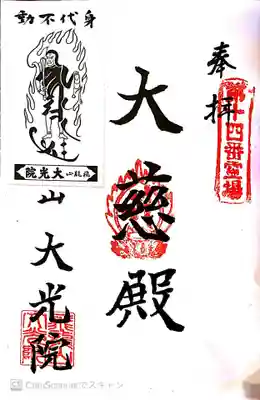 奉拝
第十四番霊場
大慈殿
身代不動
大光院
山大光院
CamScannerでスキャン